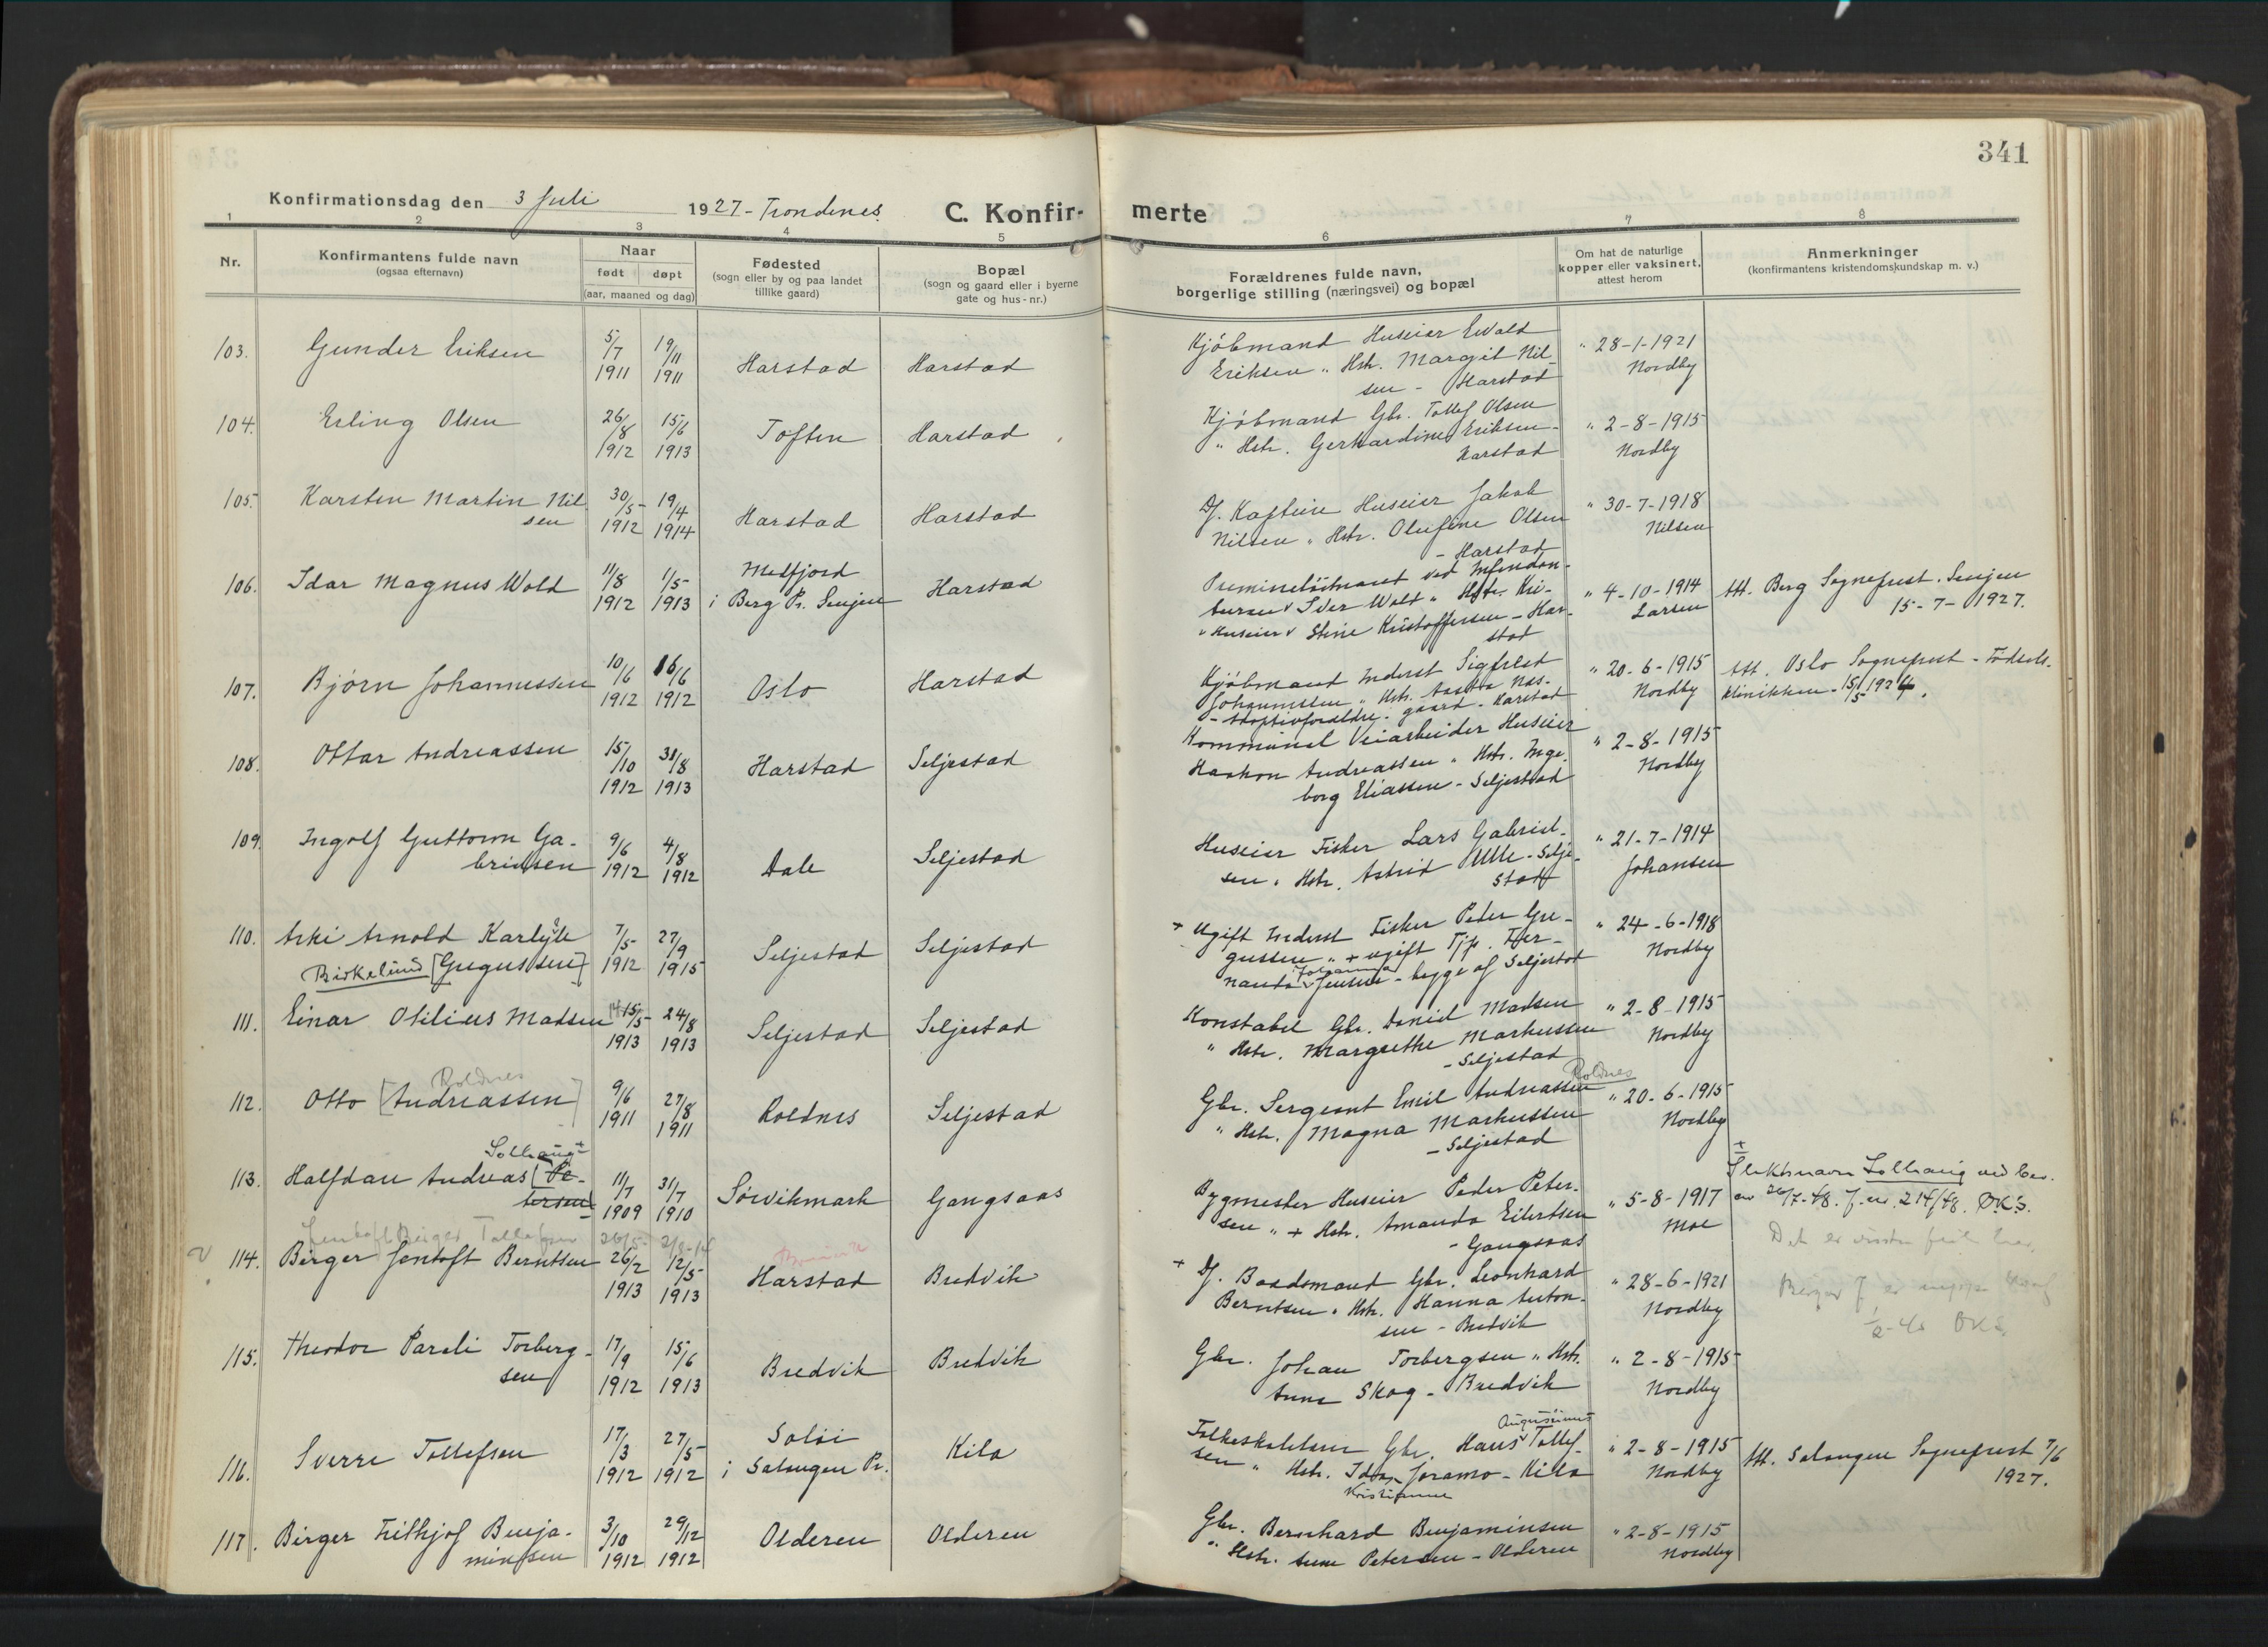 341
Konfirmationsdag den 3 Juli 1927 - Trondenes. C. Konfir- merte
1 2 3 4 5 6 7 8
Nr.
Konfirmantens fulde navn
(ogsaa efternavn)
Naar
født døpt
(aar, maaned og dag)
Fødested
(sogn eller by og paa landet
tillike gaard)
Bopæl
(sogn og gaard eller i byerne
gate og hus-nr.)
Forældrenes fulde navn,
borgerlige stilling (næringsvei) og bopæl
Om hat de naturlige
kopper eller vaksinert,
attest herom
Anmerkninger
(konfirmantens kristendomskundskap m. v.)
103. Gunder Eriksen
5/7 1911
19/11 1911
Harstad
Harstad
Kjøbmand Huseier Evald
Eriksen " Hstr. Margit Nil-
sen - Harstad
" 28-1-1921
Nordby
104. Erling Olsen
26/8 1912
15/6 1913
Toften
Harstad
Kjøbmand Gbr. Tollef Olsen
" Hstr. Gerhardine Eriksen -
Harstad
" 2-8-1915
Nordby
105. Karsten Martin Nil-
sen
30/5 1912
19/4 1914
Harstad
Harstad
Df. Kaptein Huseier Jakob
Nilsen " Hstr. Olufine Olsen
- Harstad
" 30-7-1918
Nilsen
106. Idar Magnus Wold
11/8 1912
1/5 1913
Medfjord
i Berg Pr. Senjen
Harstad
Premierløitnant ved Intendan-
turen Iver Wold " Hstr. Kri-
" Huseier Stine Kristoffersen - Har-
stad
" 4-10-1914
Larsen
Att. Berg Sogneprest. Senjen
15-7-1927.
107. Bjørn Johannessen
10/6 1912
16/6 1912
Oslo
Harstad
Kjøbmand Inderst Sigfred
Johannessen " Hstr. Aasta Næs-
- Adoptivforældre. gaard - Harstad
" 20-6-1915
Nordby
Att. Oslo Sogneprest - Fødsels-
klinikken - 15/5 1924.
108. Ottar Andreassen
15/10 1912
31/8 1913
Harstad
Seljestad
Kommunal Veiarbeider Huseier
Haakon Andreassen " Hstr. Inge-
borg Eliassen - Seljestad
" 2-8-1915
Nordby
109. Ingolf Guttorm Ga-
brielsen
9/6 1912
4/8 1912
Dale
Seljestad
Huseier Fisker Lars Gabriel-
sen " Hstr. Astrid Ulle - Selje-
stad
" 21-7-1914
Johansen
110. Aki Arnold Karlyle
Birkelund [Gregussen]
7/5 1912
27/9 1915
Seljestad
Seljestad
+ Ugift Inderst Fisker Peter Gre-
gussen " + ugift Tjp. Fer-
nanda Johanna Jensen - begge af Seljestad
" 24-6-1918
Nordby
111. Einar Otilius Madsen
14 15/5 1913
24/8 1913
Seljestad
Seljestad
Konstabel Gbr. Daniel Madsen
" Hstr. Margrethe Markussen
- Seljestad
" 2-8-1915
Nordby
Roldnes
112. Otto [Andreassen]
9/6 1911
27/8 1911
Roldnes
Seljestad
Roldnes
Gbr. Sergeant Emil Andreassen
" Hstr. Magna Markussen
- Seljestad
" 20-6-1915
Nordby
Solhaug +
113. Halfdan Andreas [Pe-
tersen]
11/7 1909
31/7 1910
Sørvikmark
Gangsaas
Bygmester Huseier Peder Peter-
sen " + Hstr. Amanda Eilertsen
- Gangsaas
" 5-8-1917
Moe
+
Slektsnavn Solhaug ved bev.
av 26/7-48. J.nr. 214/48. ØKS.
Jentoft Birger Tollefsen 26/5
V 114. Birger Jentoft Berntsen
26/2 1913
12/5 1913
Harstad
Bredvik
+ Df. Baadsmand Gbr. Leonhard
Berntsen " Hstr. Hanna Anton-
sen - Bredvik
" 28-6-1921
Nordby
Det er feil her.
Birger J. er
ØKS.
115. Theodor Pareli Torberg-
sen
17/9 1912
15/6 1913
Bredvik
Bredvik
Gbr. Johan Torbergsen " Hstr.
Anna Skog - Bredvik
" 2-8-1915
Nordby
116. Sverre Tollefsen
17/3 1912
27/5 1912
Soløi
i Salangen Pr.
Kila
Augustinus
Folkeskolelærer Gbr. Hans Tollef-
sen " Hstr. Ida Joramo - Kila
Kristianne
" 2-8-1915
Nordby
Att. Salangen Sogneprest 7/6
1927.
117. Birger Frithjof Benja-
minsen
3/10 1912
29/12 1912
Olderen
Olderen
Gbr. Bernhard Benjaminsen
" Hstr. Anne Petersen - Olderen
" 2-8-1915
Nordby